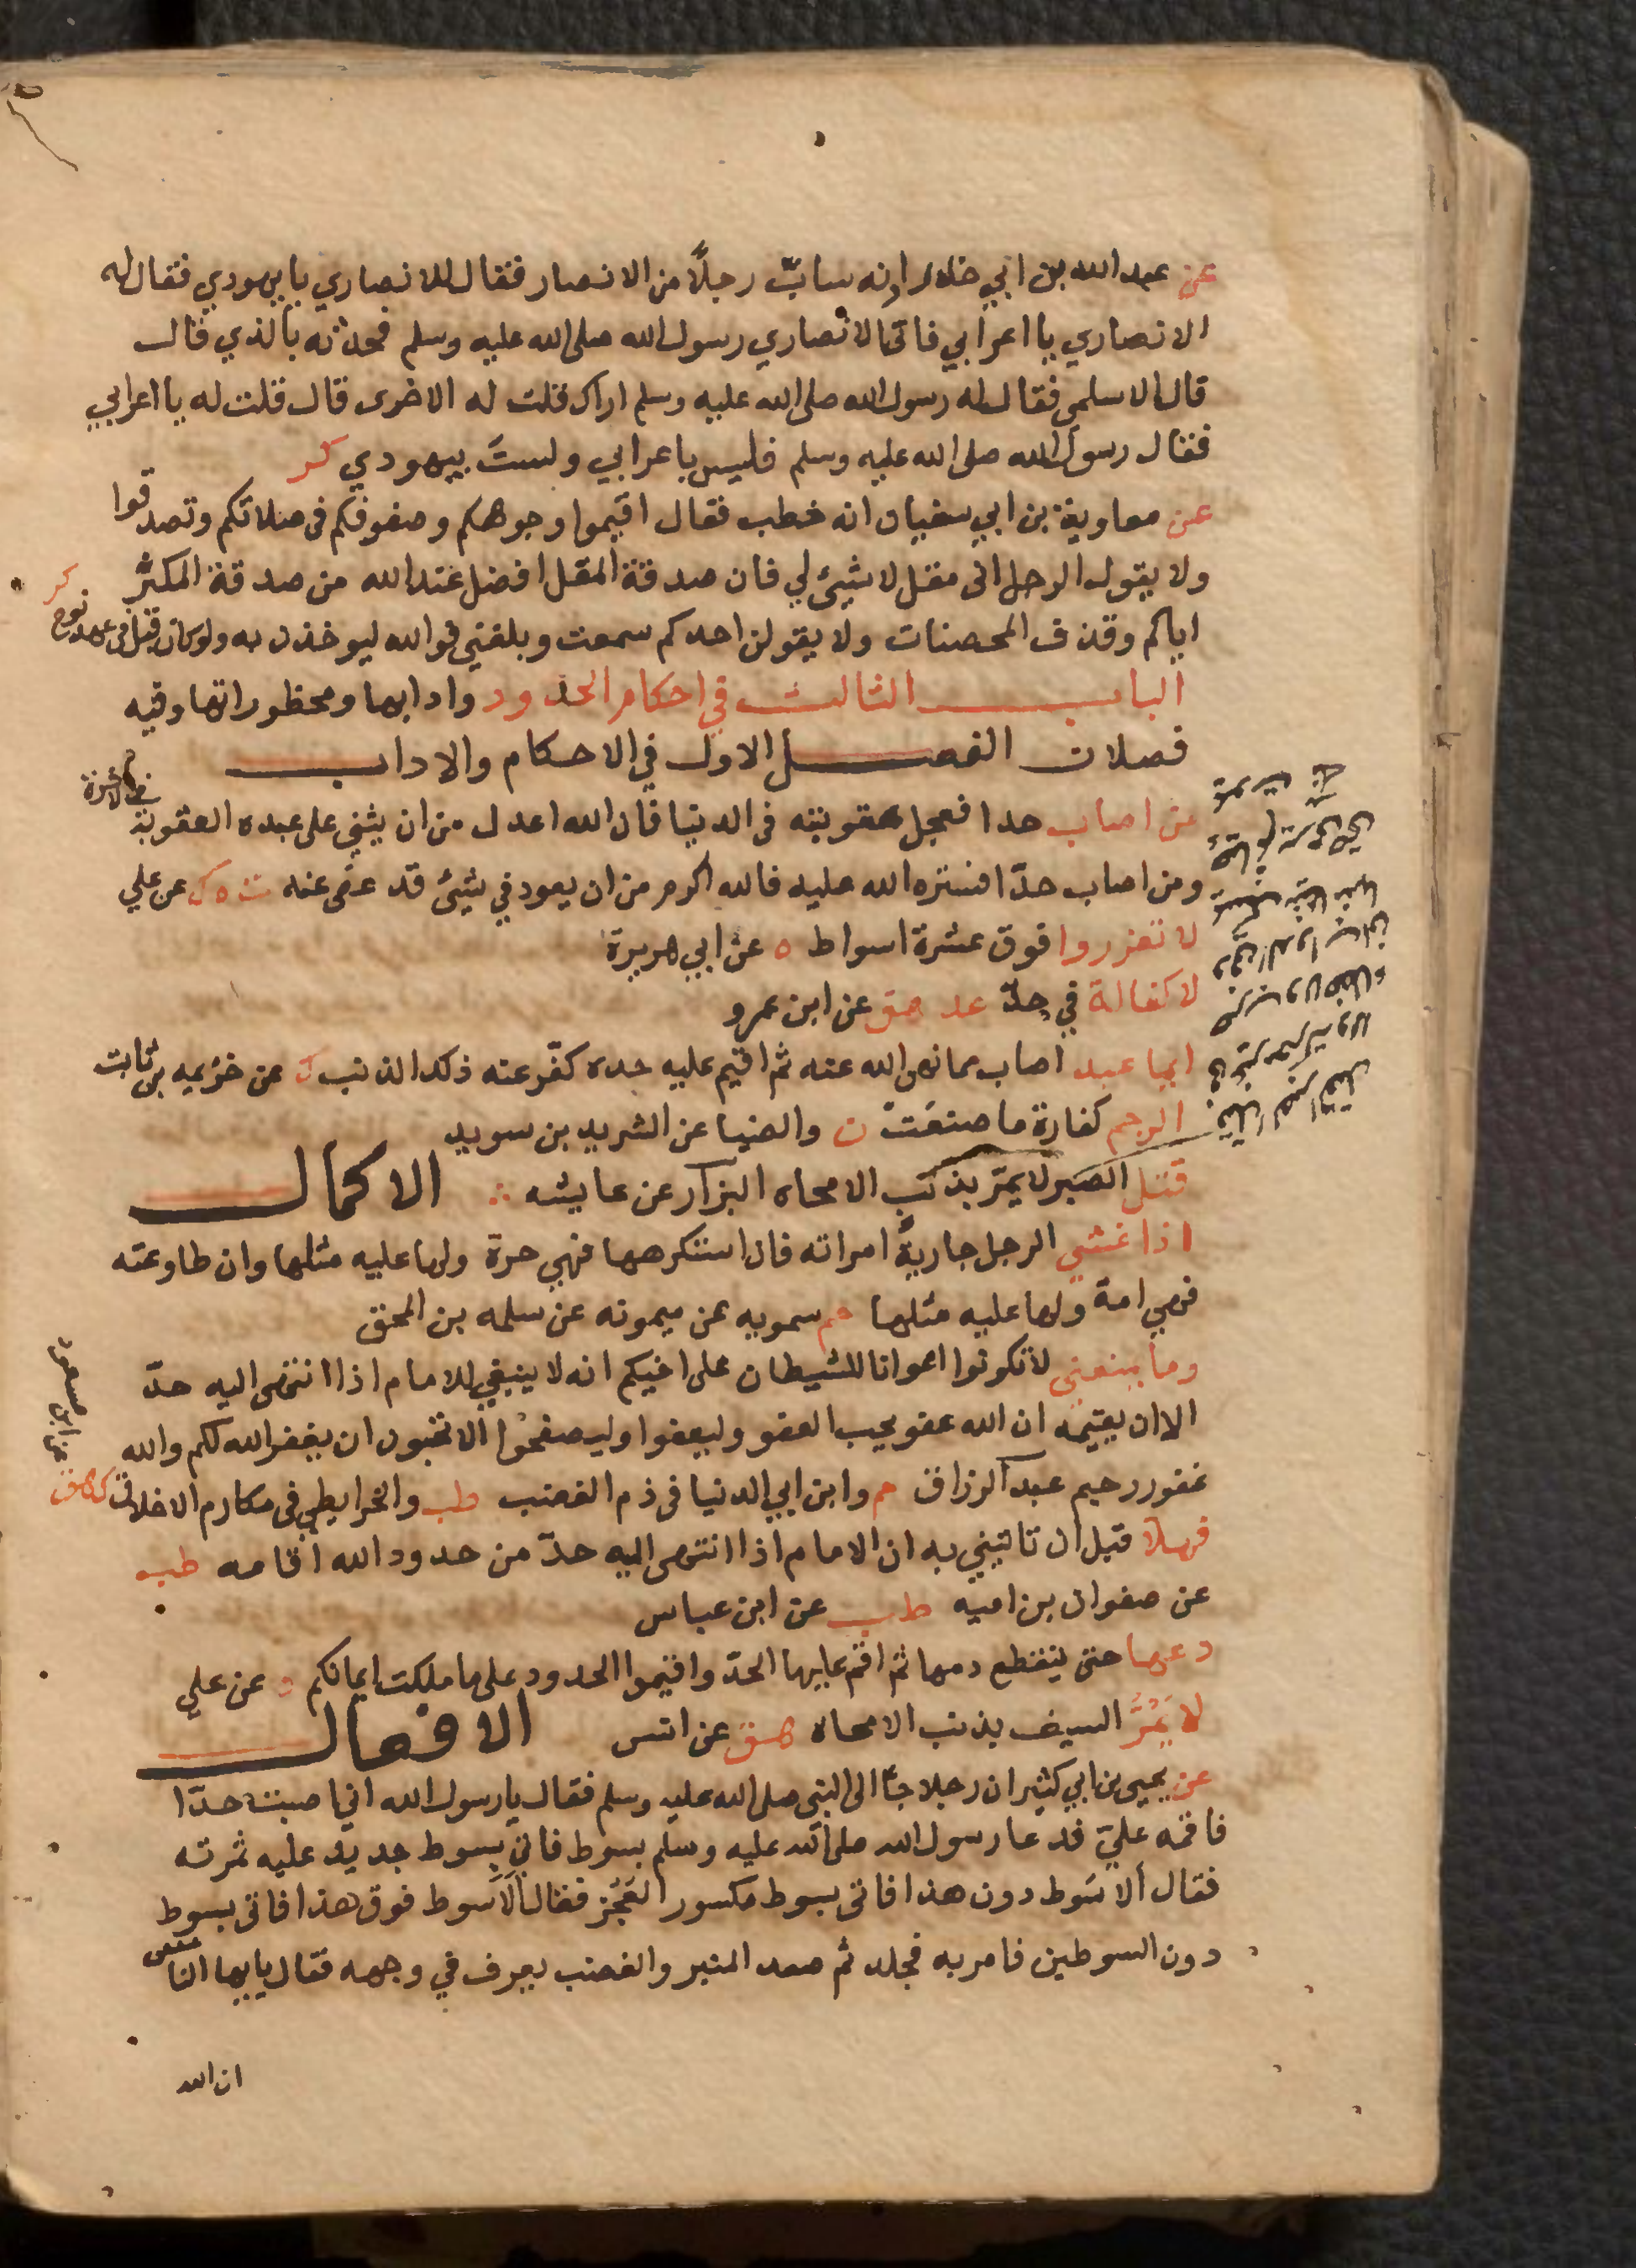 عن عبد الله بن ابي حدرد انه سابّ رجلًا من الانصار فقال للانصاري يا يهودي فقال له
الانصاري يا اعرابي فاتى الانصاري رسول الله صلى الله عليه وسلم فحدثه بالذي قال
قال الاسلمي فقال له رسول الله صلى الله عليه وسلم اراك قلت له الاخرى قال قلت له يا اعرابي
فقال رسول الله صلى الله عليه وسلم فليس باعرابي ولستَ بيهودي كر
عن معاوية بن ابي سفيان انه خطب فقال اقيموا وجوهكم وصفوفكم في صلاتكم وتصدقوا
ولا يقول الرجل انى مقل لا شيئ لي فان صدقة المقل افضل عند الله من صدقة المكثر
اياكم وقذف المحصنات ولا يقولن احدكم سمعت وبلغني فوالله ليوخذن به ولو كان قيل في عهد نوح كر
الباب الثالث في احكام الحدود وادابها ومحظوراتها وفيه
فصلان الفصل الاول في الاحكام والاداب
من اصاب حدا فعجل عقوبته في الدنيا فان الله اعدل من ان يثني على عبده العقوبة في الاخرة
ومن اصاب حدّا فستره الله عليه فالله اكرم من ان يعود في شيئ قد عفى عنه ت ه ك عن علي
لا تعزروا فوق عشرة اسواط ه عن ابي هريرة
لا كفالة في حدّ عد هق عن ابن عمرو
ايما عبد اصاب مما نهى الله عنه ثم اقيم عليه حده كفّر عنه ذلك الذنب ك عن خزيمه بن ثابت
الرجم كفارة ما صنعَت ن والضيا عن الشريد بن سويد
قتل الصبر لا يمرّ بذنب الا محاه البزار عن عايشه الاكمال
اذا غشي الرجل جارية امراته فان استكرهها فهي حرة ولها عليه مثلها وان طاوعته
فهي امة ولها عليه مثلها حم سمويه عن ميمونه عن سلمه بن المحبق
وما يمنعني لا تكونوا اعوانا للشيطان على اخيكم انه لا ينبغي للامام اذا انتهى اليه حدّ
الا ان يقيمه ان الله عفو يحب العفو وليعفوا وليصفحوا الا تحبون ان يغفر الله لكم والله
غفور رحيم عبد الرزاق حم وابن ابي الدنيا في ذم الغضب طب والخرايطي في مكارم الاخلاق ك هق
عن ابن مسعود
فهلا قبل ان تاتيني به ان الامام اذا انتهى اليه حدّ من حدود الله اقامه طب
عن صفوان بن اميه طب عن ابن عباس
دعها حتى ينقطع دمها ثم اقم عليها الحدّ واقيموا الحدود على ما ملكت ايمانكم د عن علي
لا يَمُرُّ السيف بذنب الا محاه هق عن انس الافعال
عن يحيى بن ابي كثير ان رجلا جا الى النبي صلى الله عليه وسلم فقال يا رسول الله اني اصبت حدّا
فاقمه عليّ فدعا رسول الله صلى الله عليه وسلم بسوط فاتي بسوط جديد عليه ثمرته
فقال ألا سَوط دون هذا فاتى بسوط مكسور العَجُز فقال ألا سوط فوق هذا فاتى بسوط
دون السوطين فامر به فجلد ثم صعد المنبر والغضب يعرف في وجهه فقال يا ايها الناس
ان الله